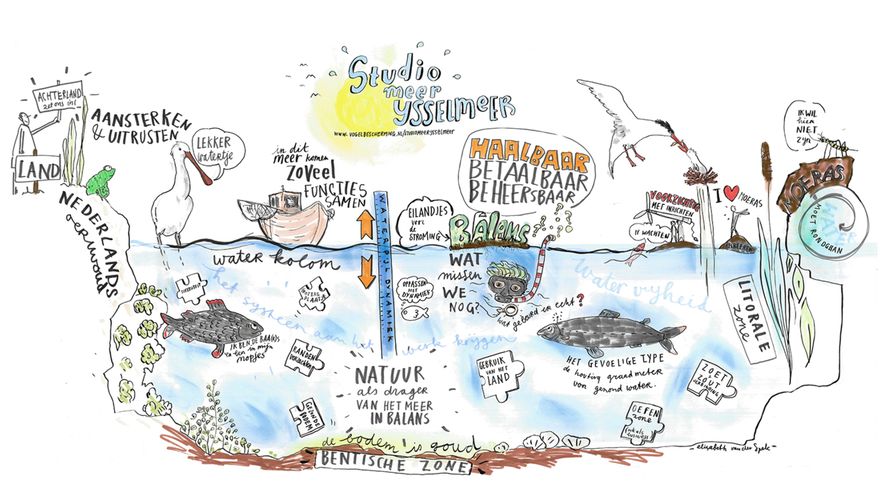 Studio
meer
YSSELMEER
WWW.VOGELBESCHERMING.NL/STUDIOMEERYSSELMEER
ACHTERLAND
zet ons in!
LAND
AANSTERKEN
& UITRUSTEN
LEKKER
watertje
NEDERLANDS
oerwoud
in dit
meer komen
ZOVEEL
FUNCTIES
SAMEN
WATERPIJL DYNAMIEK
EILANDJES
voor
de
STROMING
HAALBAAR
BETAALBAAR
BEHEERSBAAR
Balans
VOORZICHTIG
MET INRICHTEN
WACHTEN
I ❤ MOERAS
IK WIL
hier
NIET
zijn
MOERAS
MOET ROND GAAN
water kolom
het systeem aan het werk krijgen
OPPASSEN
MET
DYNAMIEK
WAT
missen
WE
NOG?
wat gebeurd er echt?
Water vrijheid
LITORALE
zone
IK BEN DE BAAS
mopjes
RANDEN
NATUUR
als drager
VAN HET MEER
IN BALANS
GEBRUIK
VAN HET
LAND
HET GEVOELIGE TYPE
de houting graadmeter
van gezond water.
ZOET
ZOUT
OEFEN
zone
de bodem is goud
BENTISCHE ZONE
- elisabeth van der Spek -